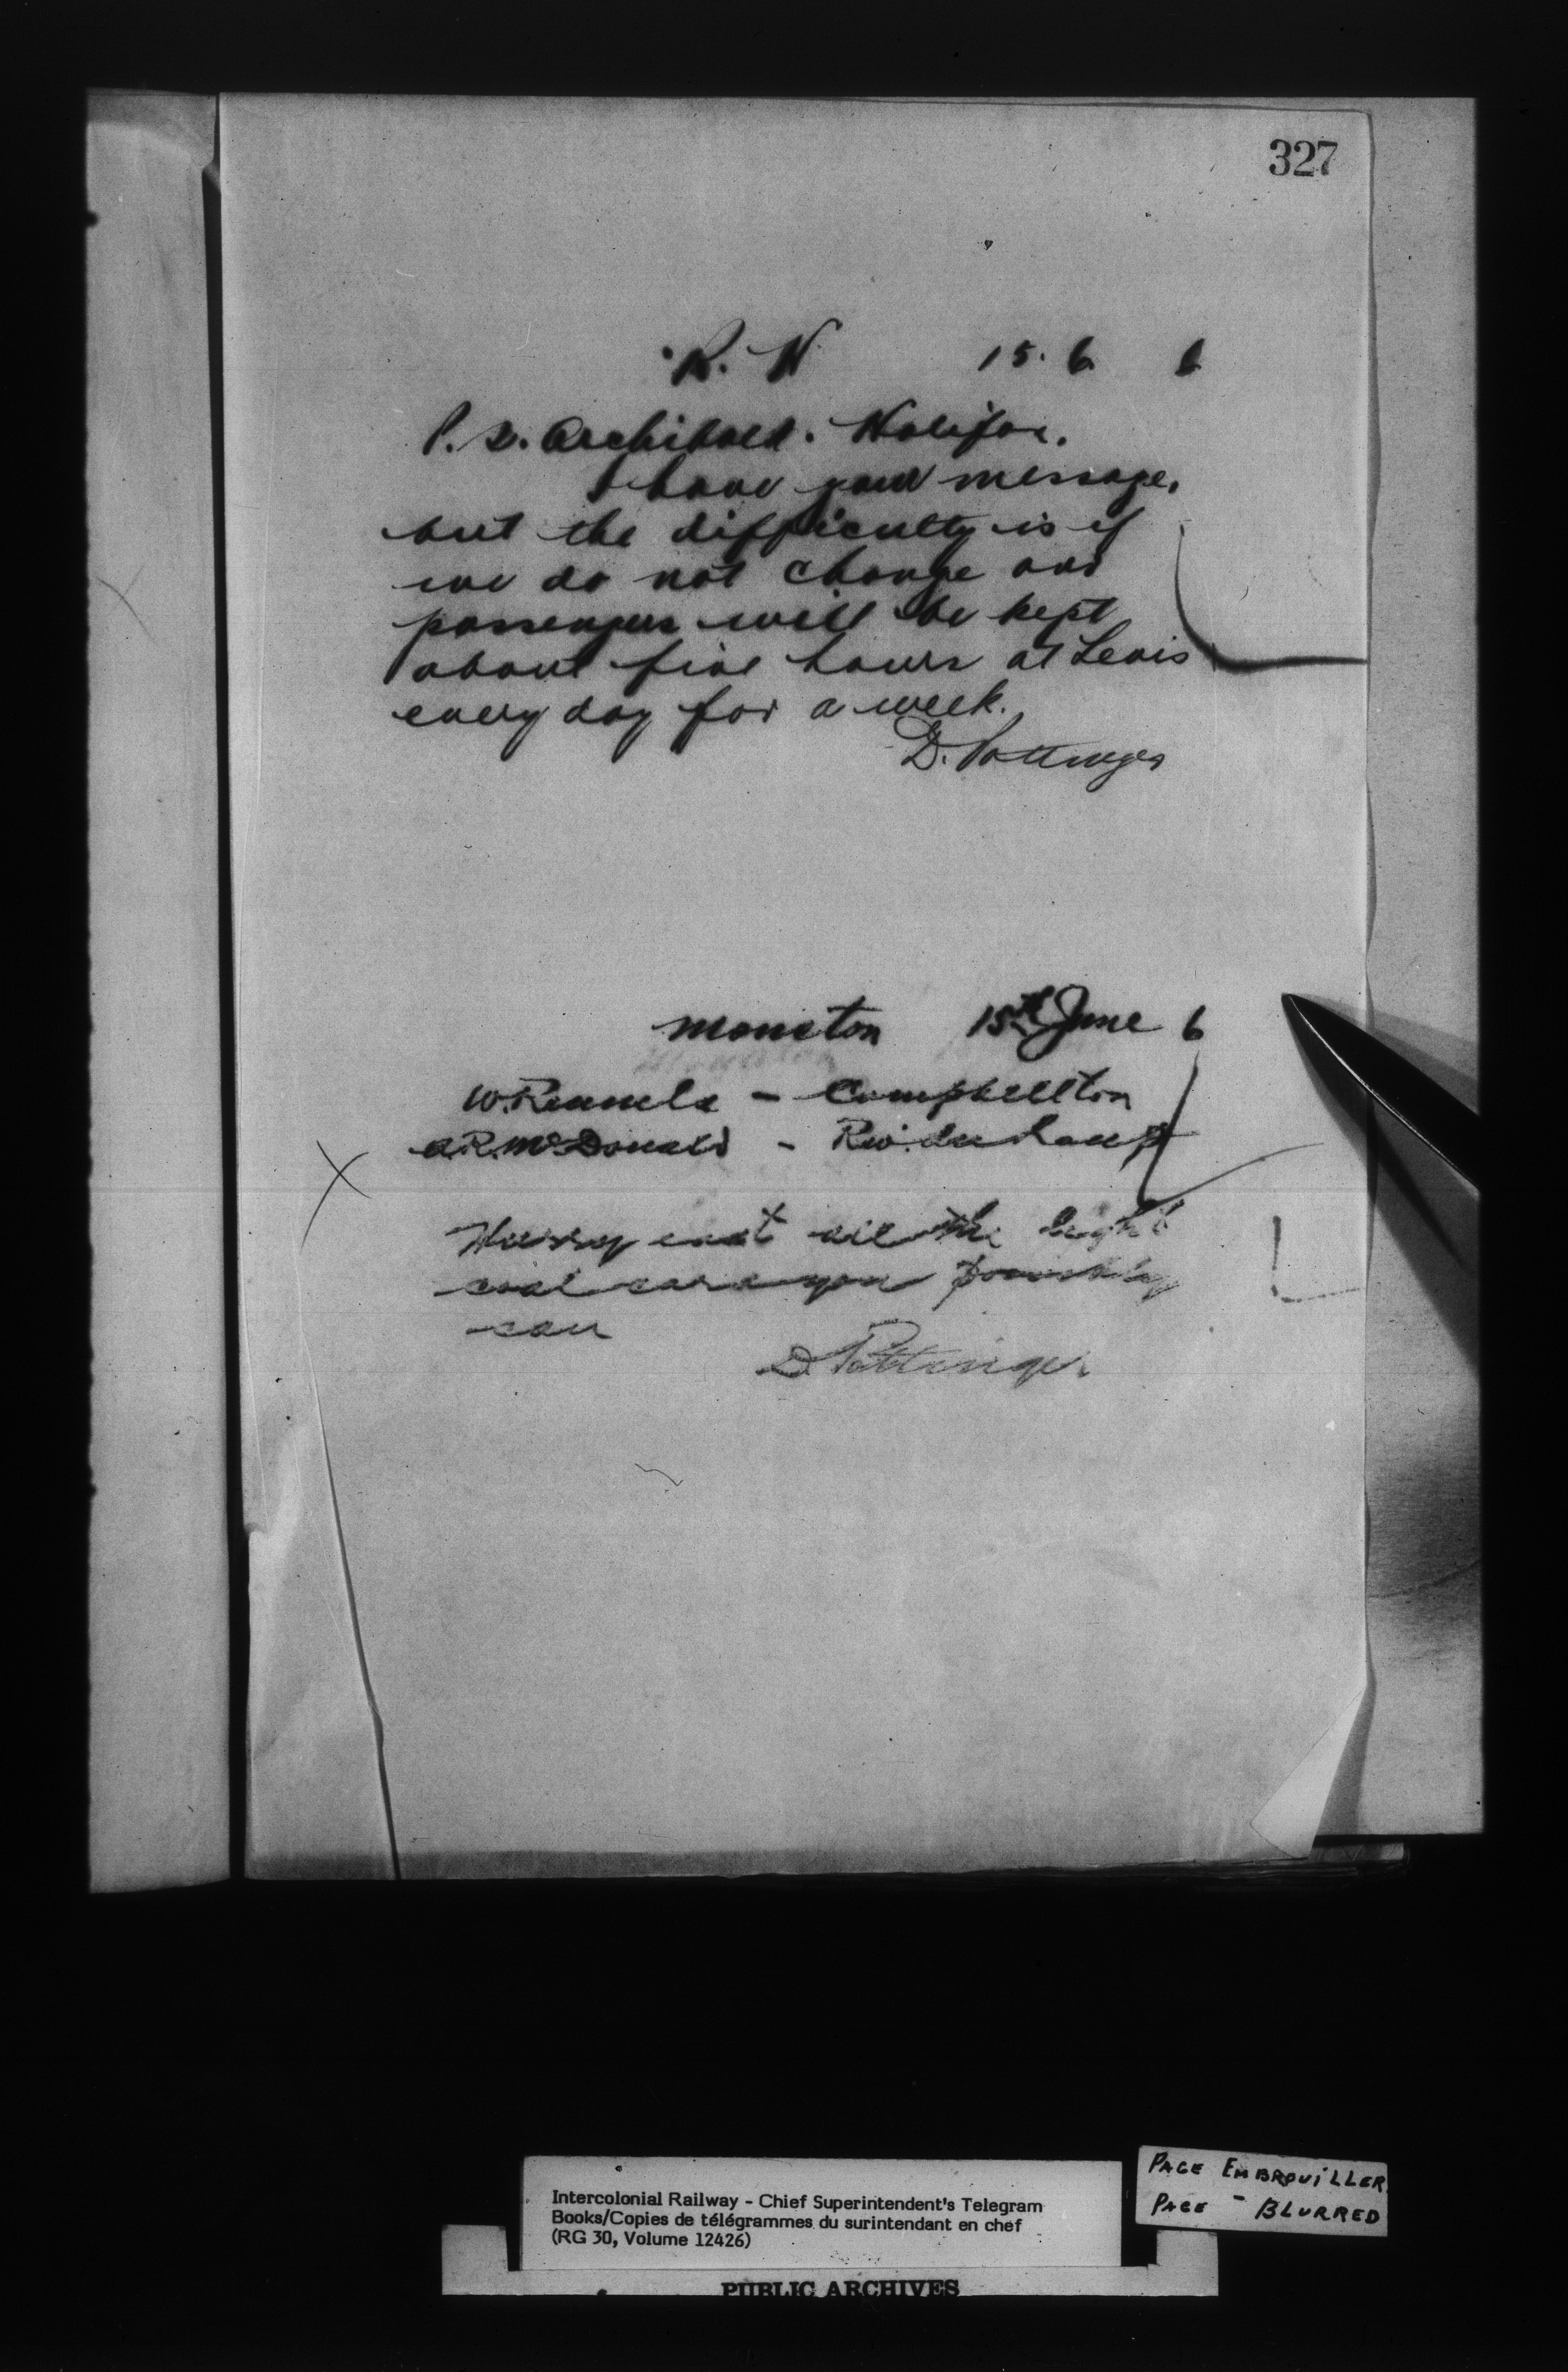 327
R. W 15. 6 6
P. S. Archibald. Halifax.
I have your message,
but the difficulty is if
we do not change our
passengers will be kept
about five hours at Levis
every day for a week.
D. Pottinger
Moncton 15th June 6
W. Rennels - Campbellton
A.R. McDonald - Riv. du Loup
Hurry east all the light
coal cars you possibly
can
D Pottinger
Intercolonial Railway - Chief Superintendent's Telegram
Books/Copies de télégrammes du surintendant en chef
(RG 30, Volume 12426)
PAGE EMBROUILLER
PAGE - BLURRED
PUBLIC ARCHIVES